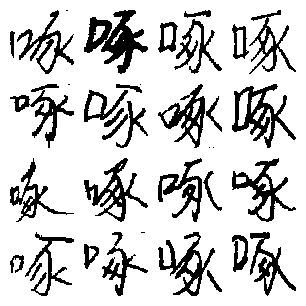 啄啄啄啄
啄啄啄啄
啄啄啄啄
啄啄啄啄